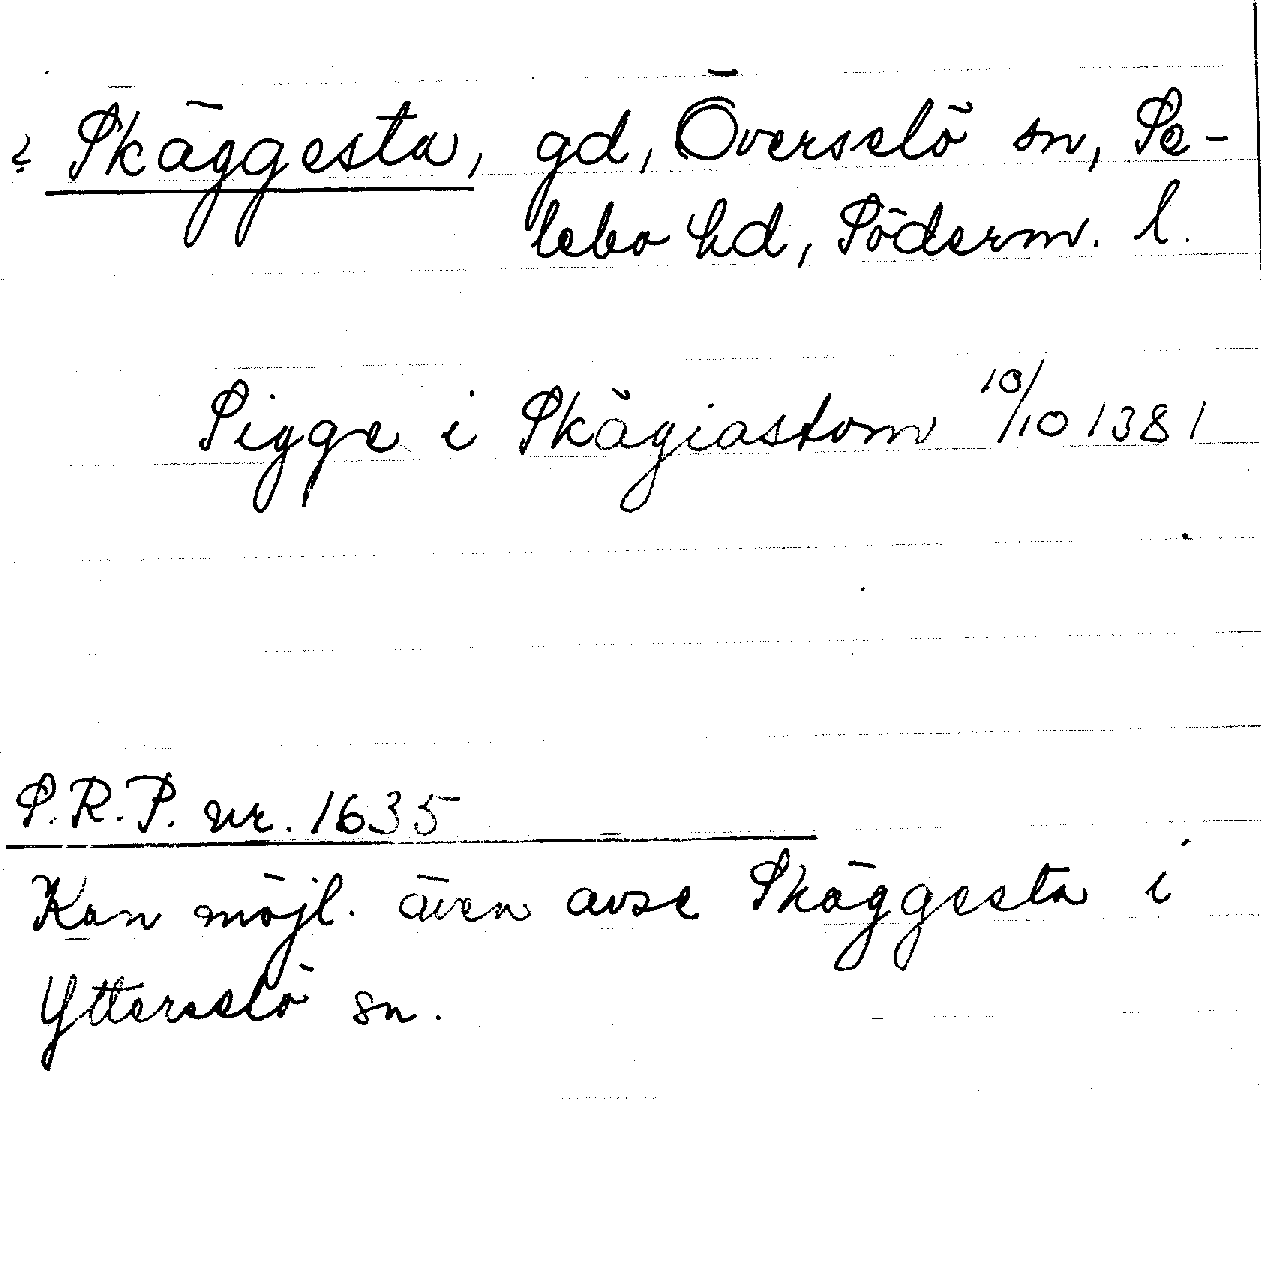 ? Skäggesta, gd, Överselö sn, Se-
lebo hd, Söderm. l.
Sigge i Skägiastom 10/10 1381
S.R.P. nr. 1635
Kan möjl. även avse Skäggesta i
Ytterselö sn.